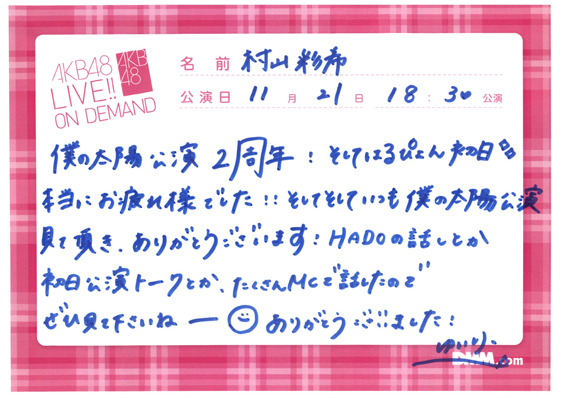 AKB48
LIVE!!
ON DEMAND
AKB
48
名 前 村山彩希
公演日 11 月 21 日 18 : 30 公演
僕の太陽公演 2周年！そしてはるぴょん初日
本当にお疲れ様でした!!そしてそしていつも僕の太陽公演
見て頂き、ありがとうございます！HADOの話しとか
初日公演トークとか、たくさんMCで話したので
ぜひ見て下さいねー ありがとうございました！
ゆいり
DMM.com